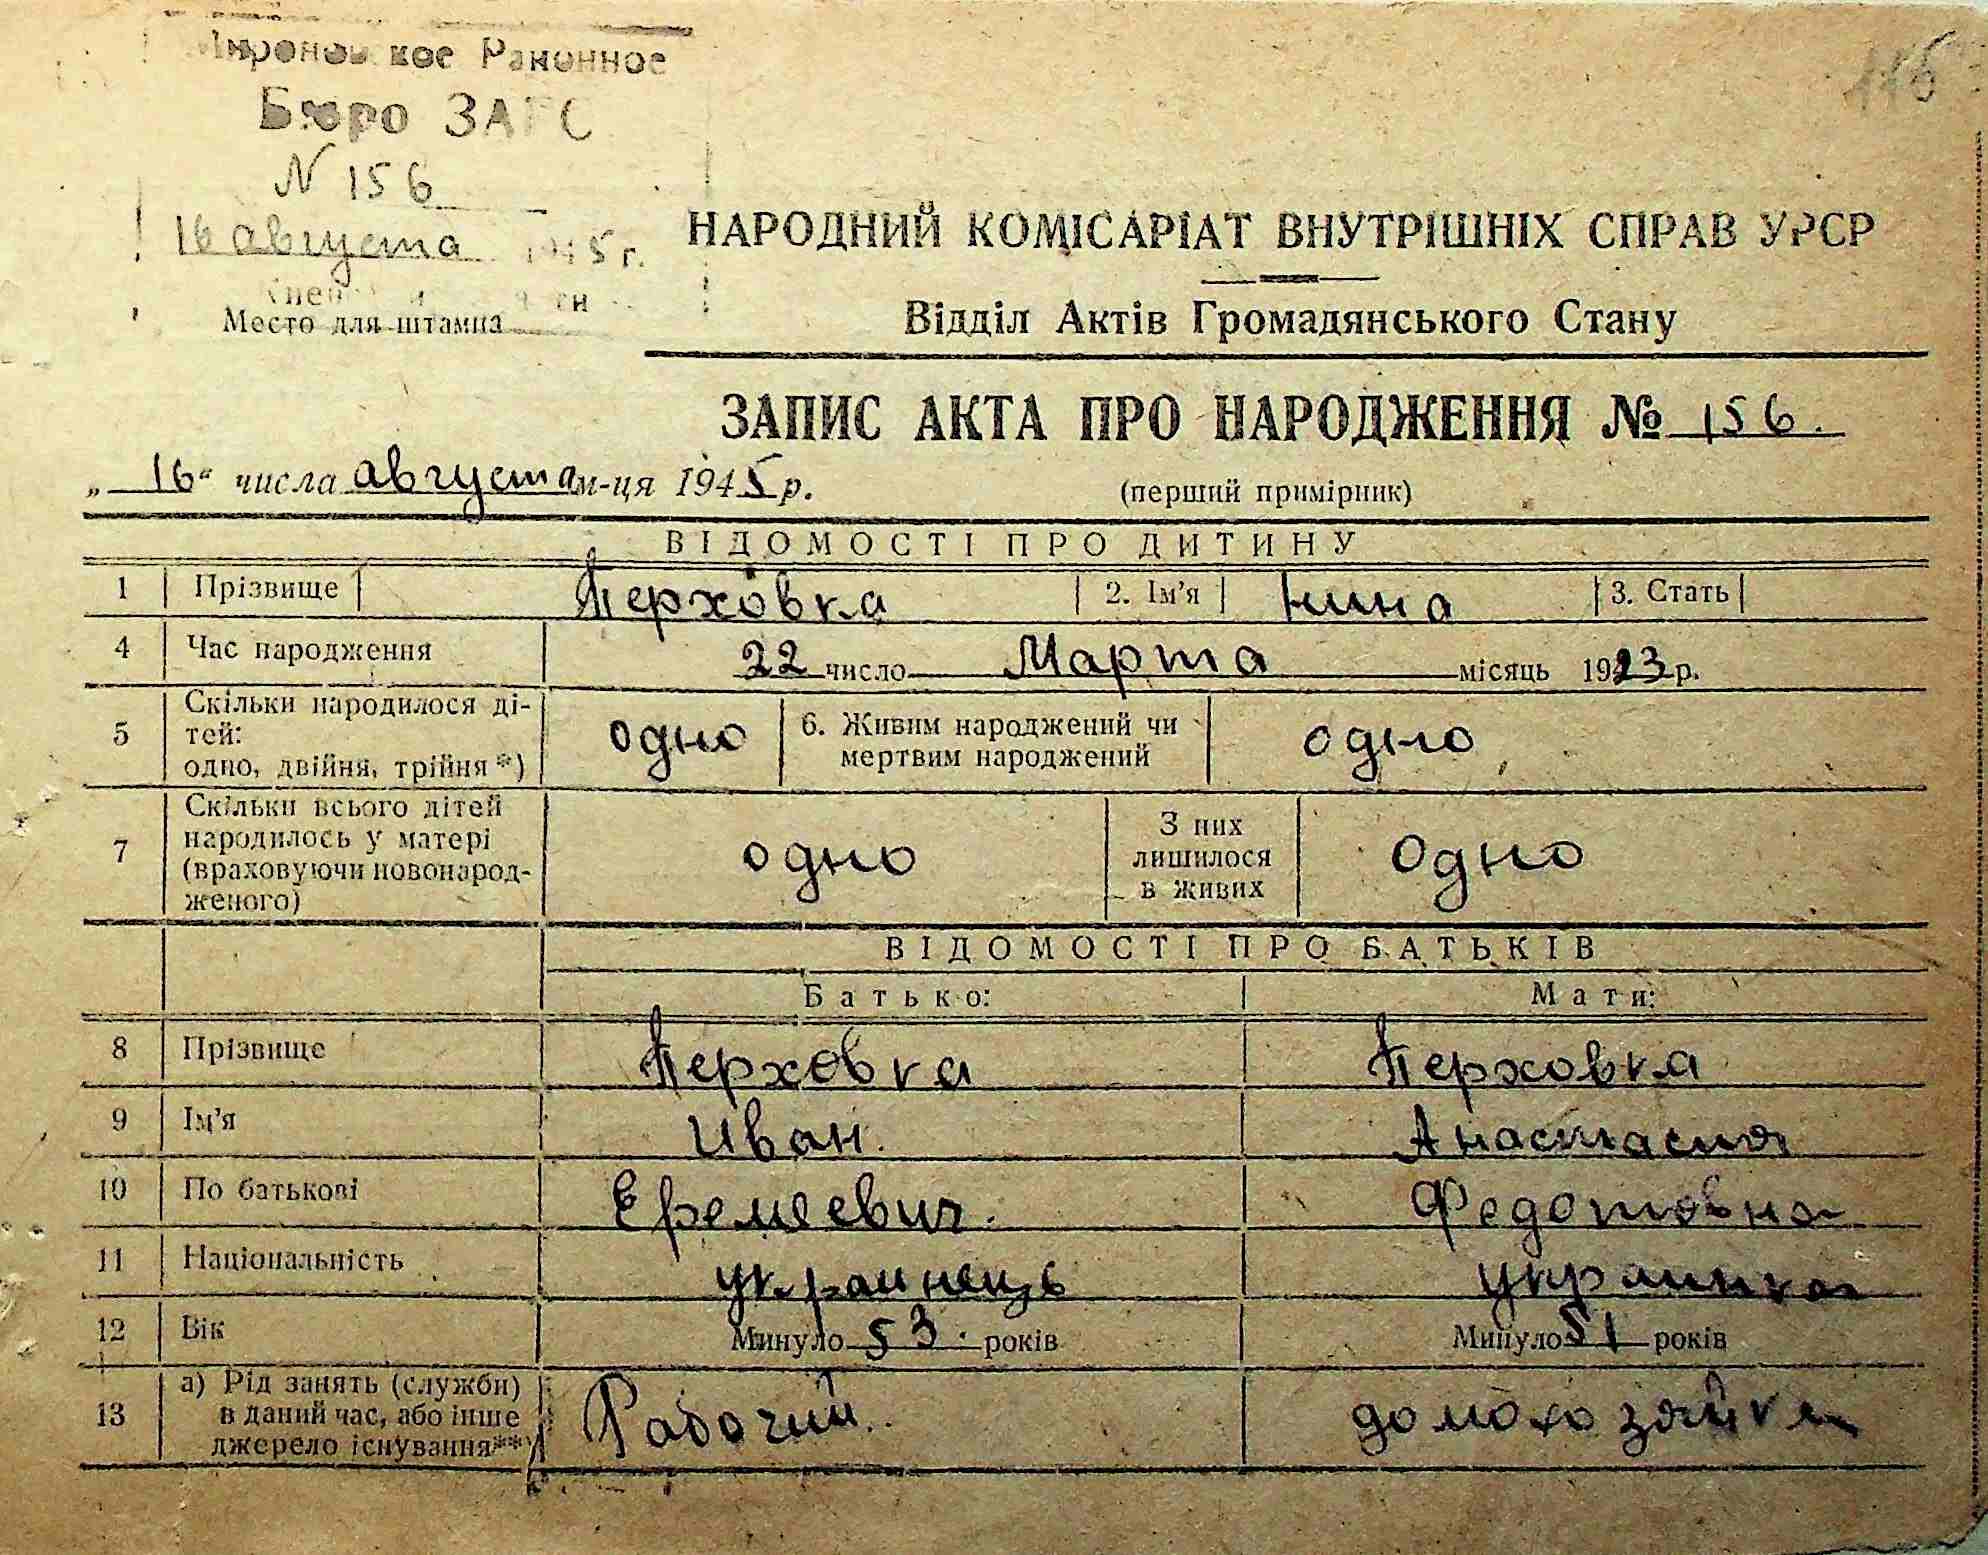 Мироновское Районное
Бюро ЗАГС
N 156
16 августа 1945 г.
Место для штампа
116
НАРОДНИЙ КОМІСАРІАТ ВНУТРІШНІХ СПРАВ УРСР
Відділ Актів Громадянського Стану
ЗАПИС АКТА ПРО НАРОДЖЕННЯ № 156.
„16“ числа августа м-ця 1945 р. (перший примірник)
ВІДОМОСТІ ПРО ДИТИНУ
1 Прізвище Перховка 2. Ім'я Нина 3. Стать
4 Час народження 22 число Марта місяць 1923 р.
5 Скільки народилося ді-
тей:
одно, двійня, трійня*) одно 6. Живим народжений чи
мертвим народжений одно
7 Скільки всього дітей
народилось у матері
(враховуючи новонарод-
женого) одно З них
лишилося
в живих одно
ВІДОМОСТІ ПРО БАТЬКІВ
Батько: Мати:
8 Прізвище Перховка Перховка
9 Ім'я Иван. Анастасия
10 По батькові Еремеевич. Федотовна
11 Національність украинець украинка
12 Вік Минуло 53. років Минуло 51 років
13 а) Рід занять (служби)
в даний час, або інше
джерело існування**) Рабочий. домохозяйка